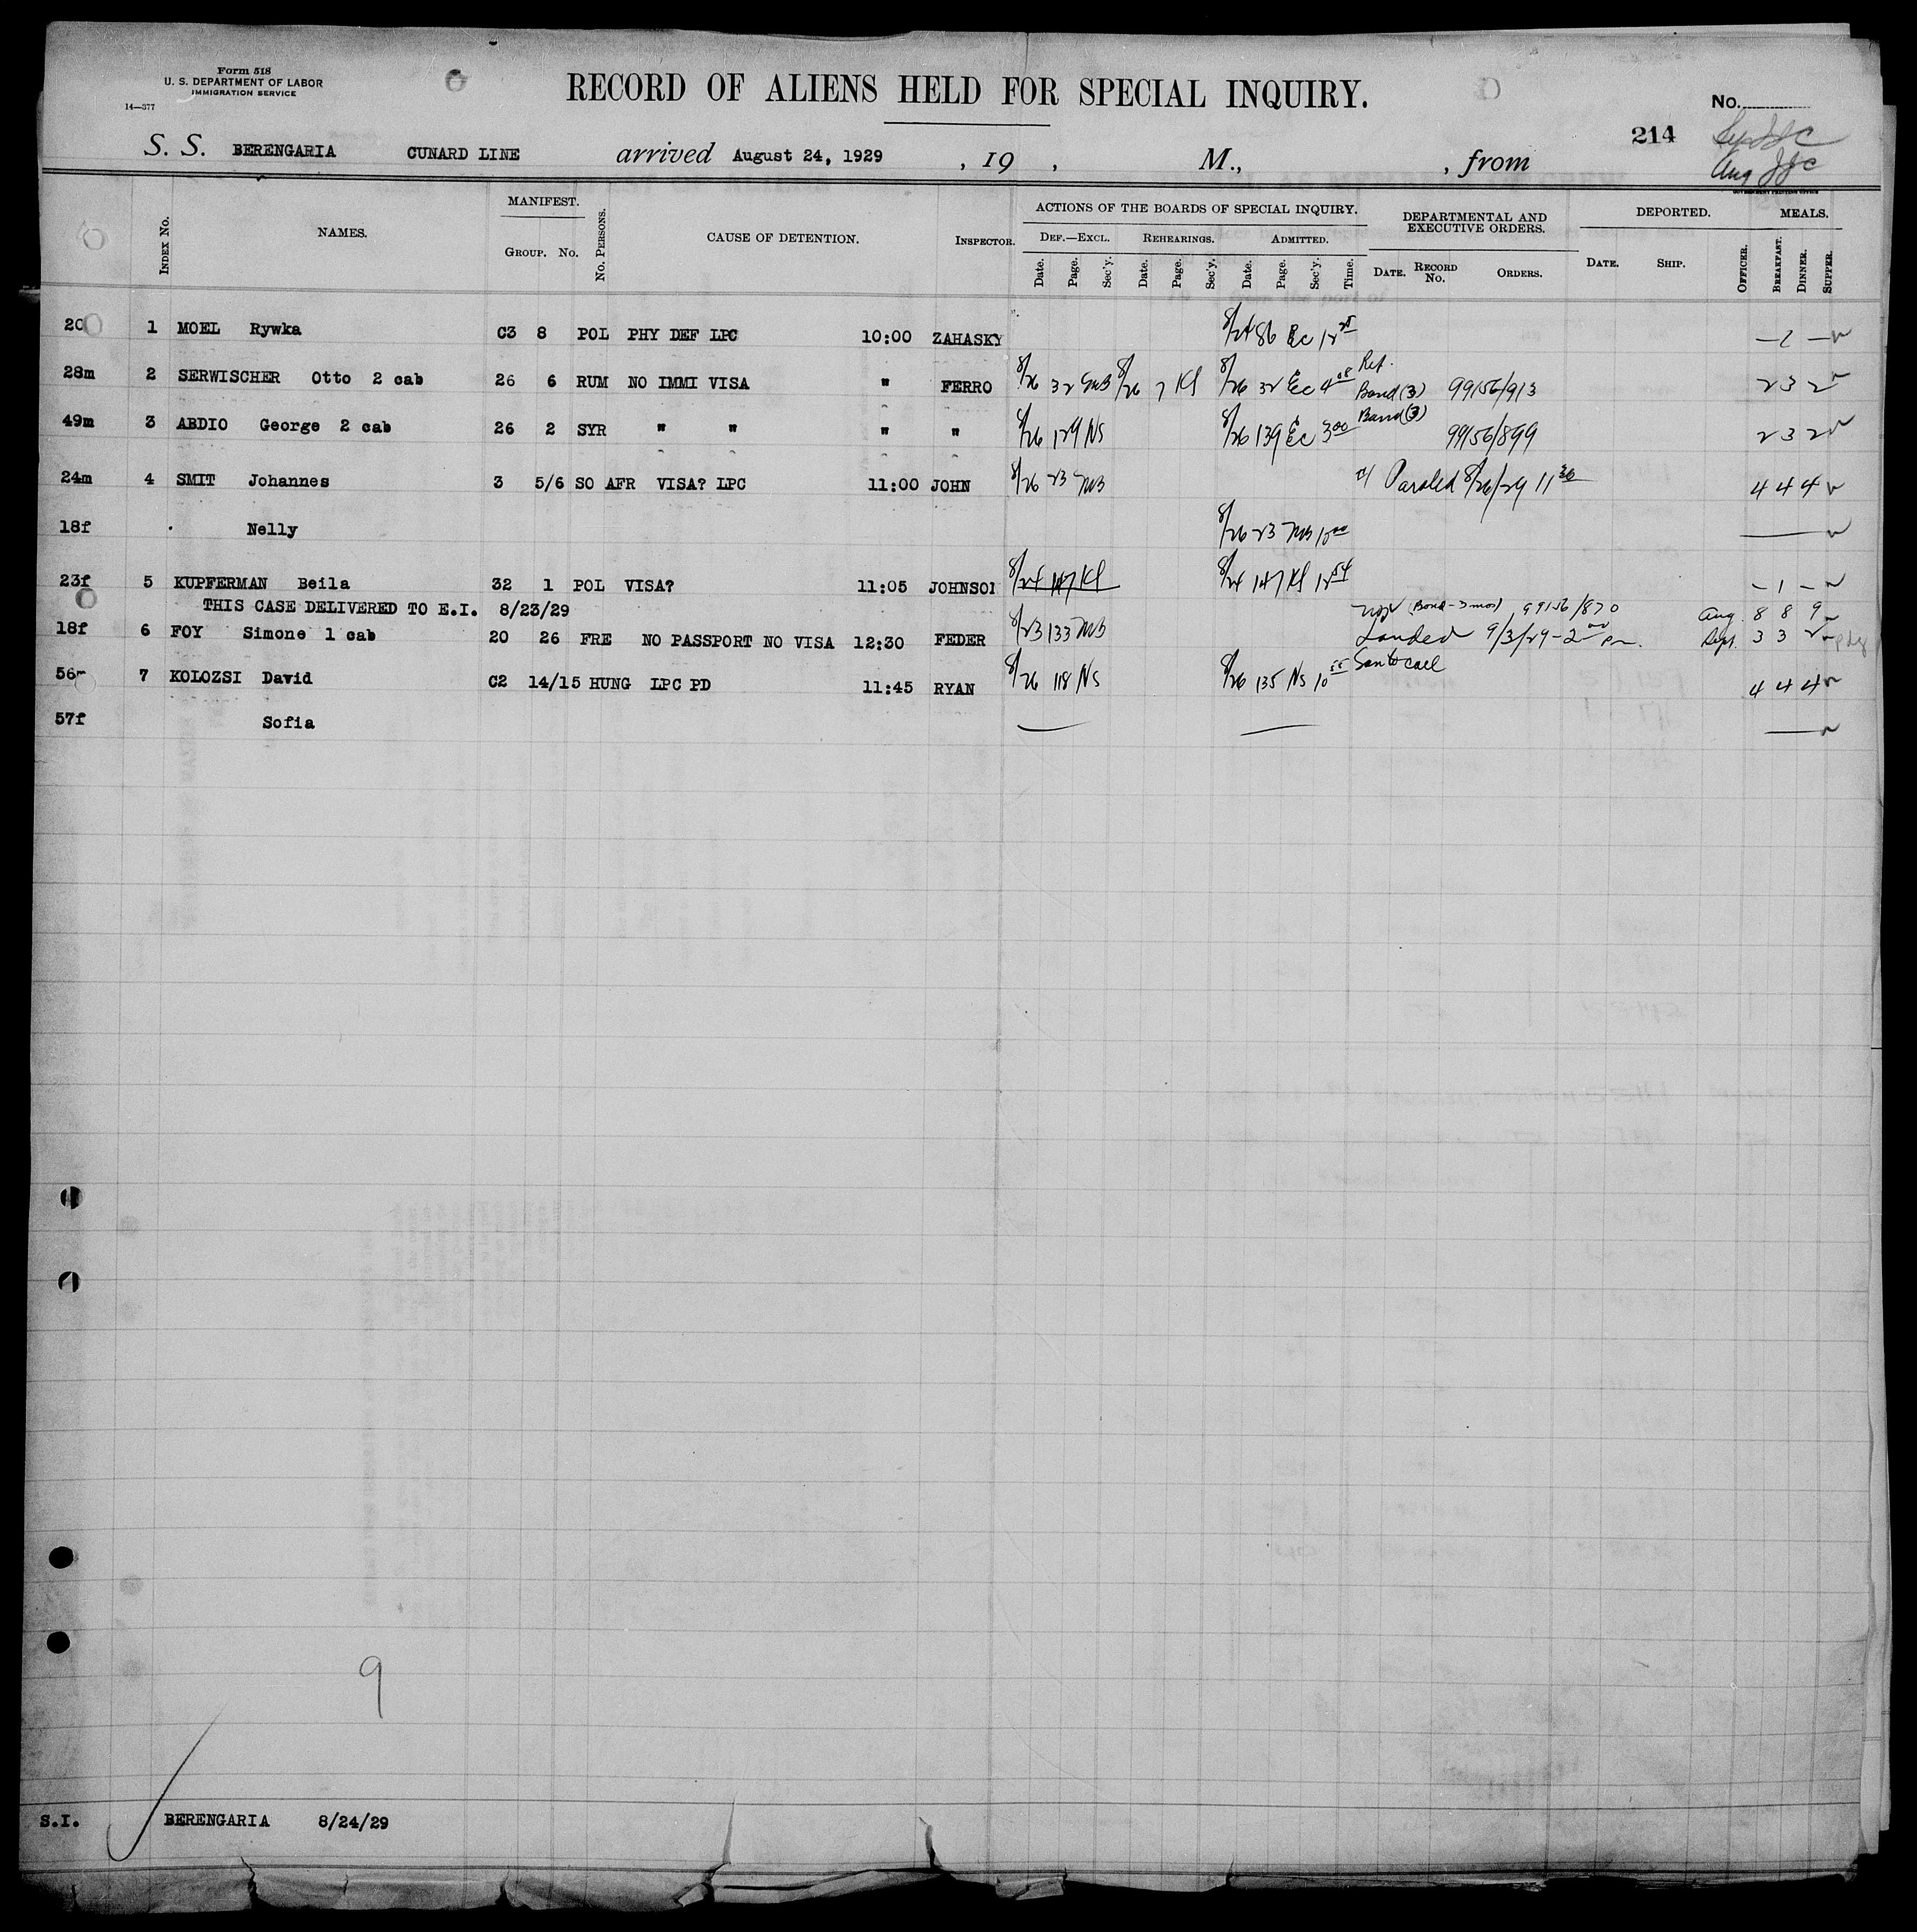 Form 518
U. S. DEPARTMENT OF LABOR
IMMIGRATION SERVICE
14—377
RECORD OF ALIENS HELD FOR SPECIAL INQUIRY.
No.
214
S. S. BERENGARIA CUNARD LINE arrived August 24, 1929 , 19 , M., , from
Aug
GOVERNMENT PRINTING OFFICE
Index No. NAMES. MANIFEST. Group. No. No. Persons. CAUSE OF DETENTION. Inspector. ACTIONS OF THE BOARDS OF SPECIAL INQUIRY. DEPARTMENTAL AND EXECUTIVE ORDERS. DEPORTED. MEALS.
Def.—Excl. Rehearings. Admitted.
Date. Page. Sec'y. Date. Page. Sec'y. Date. Page. Sec'y. Time. Date. Record No. Orders. Date. Ship. Officer. Breakfast. Dinner. Supper.
20 1 MOEL Rywka C3 8 POL PHY DEF LPC 10:00 ZAHASKY 8/24 86 Ec
28m 2 SERWISCHER Otto 2 cab 26 6 RUM NO IMMI VISA " FERRO 8/26 32 8/26 7 Kl 8/26 32 Ec 4 Bond (3) 99156/913 2 3 2
49m 3 ABDIO George 2 cab 26 2 SYR " " " " 8/26 129 Ns 8/26 139 Ec 3 00 Bond (3) 99156/899 2 3 2
24m 4 SMIT Johannes 3 5/6 SO AFR VISA? LPC 11:00 JOHN 8/26 23 MB Paroled 8/26/29 11 30 4 4 4
18f Nelly 8/26 23 MB
23f 5 KUPFERMAN Beila 32 1 POL VISA? 11:05 JOHNSON 8/24 147 Kl 8/24 147 Kl 12 54 – 1 –
THIS CASE DELIVERED TO E.I. 8/23/29 (Bond - 3 mos) 99156/870 Aug. 8 8 9
18f 6 FOY Simone 1 cab 20 26 FRE NO PASSPORT NO VISA 12:30 FEDER 8/23 133 MB Landed 9/3/29 - 2 00 pm. Sept. 3 3 2
56m 7 KOLOZSI David C2 14/15 HUNG LPC PD 11:45 RYAN 8/26 118 Ns 8/26 135 Ns 10 Son to call 4 4 4
57f Sofia
9
S.I. BERENGARIA 8/24/29